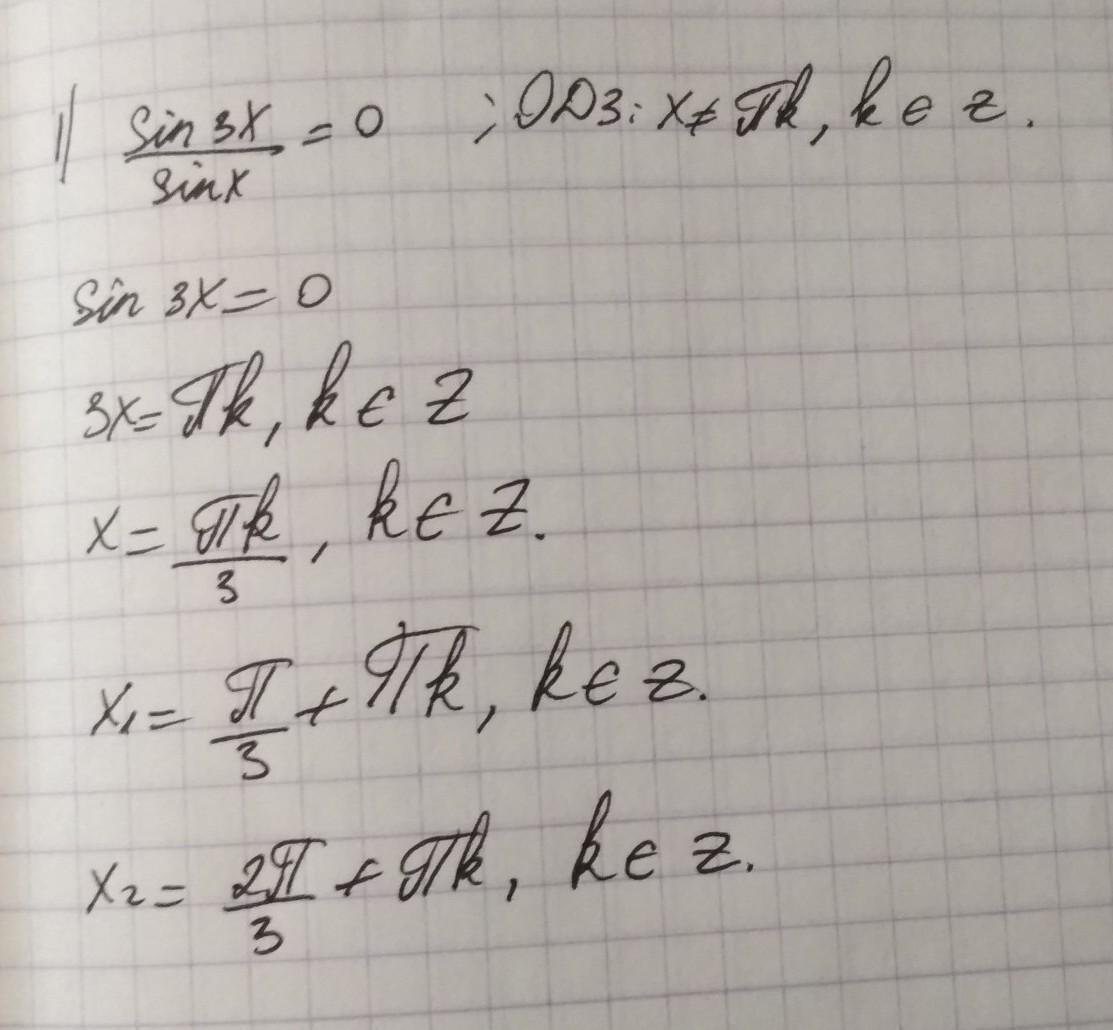 1) sin 3x / sin x = 0 ; ОДЗ: x ≠ πk, k ∈ z.
sin 3x = 0
3x = πk, k ∈ Z
x = πk / 3, k ∈ Z.
x₁ = π/3 + πk, k ∈ z.
x₂ = 2π/3 + πk, k ∈ z.